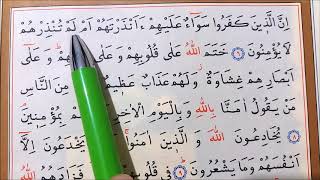 اِنَّ الَّذ۪ينَ كَفَرُوا سَوَٓاءٌ عَلَيْهِمْ ءَاَنْذَرْتَهُمْ اَمْ لَمْ تُنْذِرْهُمْ
لَا يُؤْمِنُونَ ﴿٦﴾ خَتَمَ اللّٰهُ عَلٰى قُلُوبِهِمْ وَعَلٰى وَعَلٰٓى
اَبْصَارِهِمْ غِشَاوَةٌ وَلَهُمْ عَذَابٌ عَظ۪يمٌ النَّاسِ
مَنْ يَقُولُ اٰمَنَّا بِاللّٰهِ وَبِالْيَوْمِ الْاٰخِرِ بِمُؤْمِن۪ينَ
﴿٨﴾ يُخَادِعُونَ اللّٰهَ وَالَّذ۪ينَ اٰمَنُوا يَخْدَعُونَ اِلَّٓا
اَنْفُسَهُمْ وَمَا يَشْعُرُونَ ﴿٩﴾ ف۪ي قُلُوبِهِمْ فَزَادَهُمُ